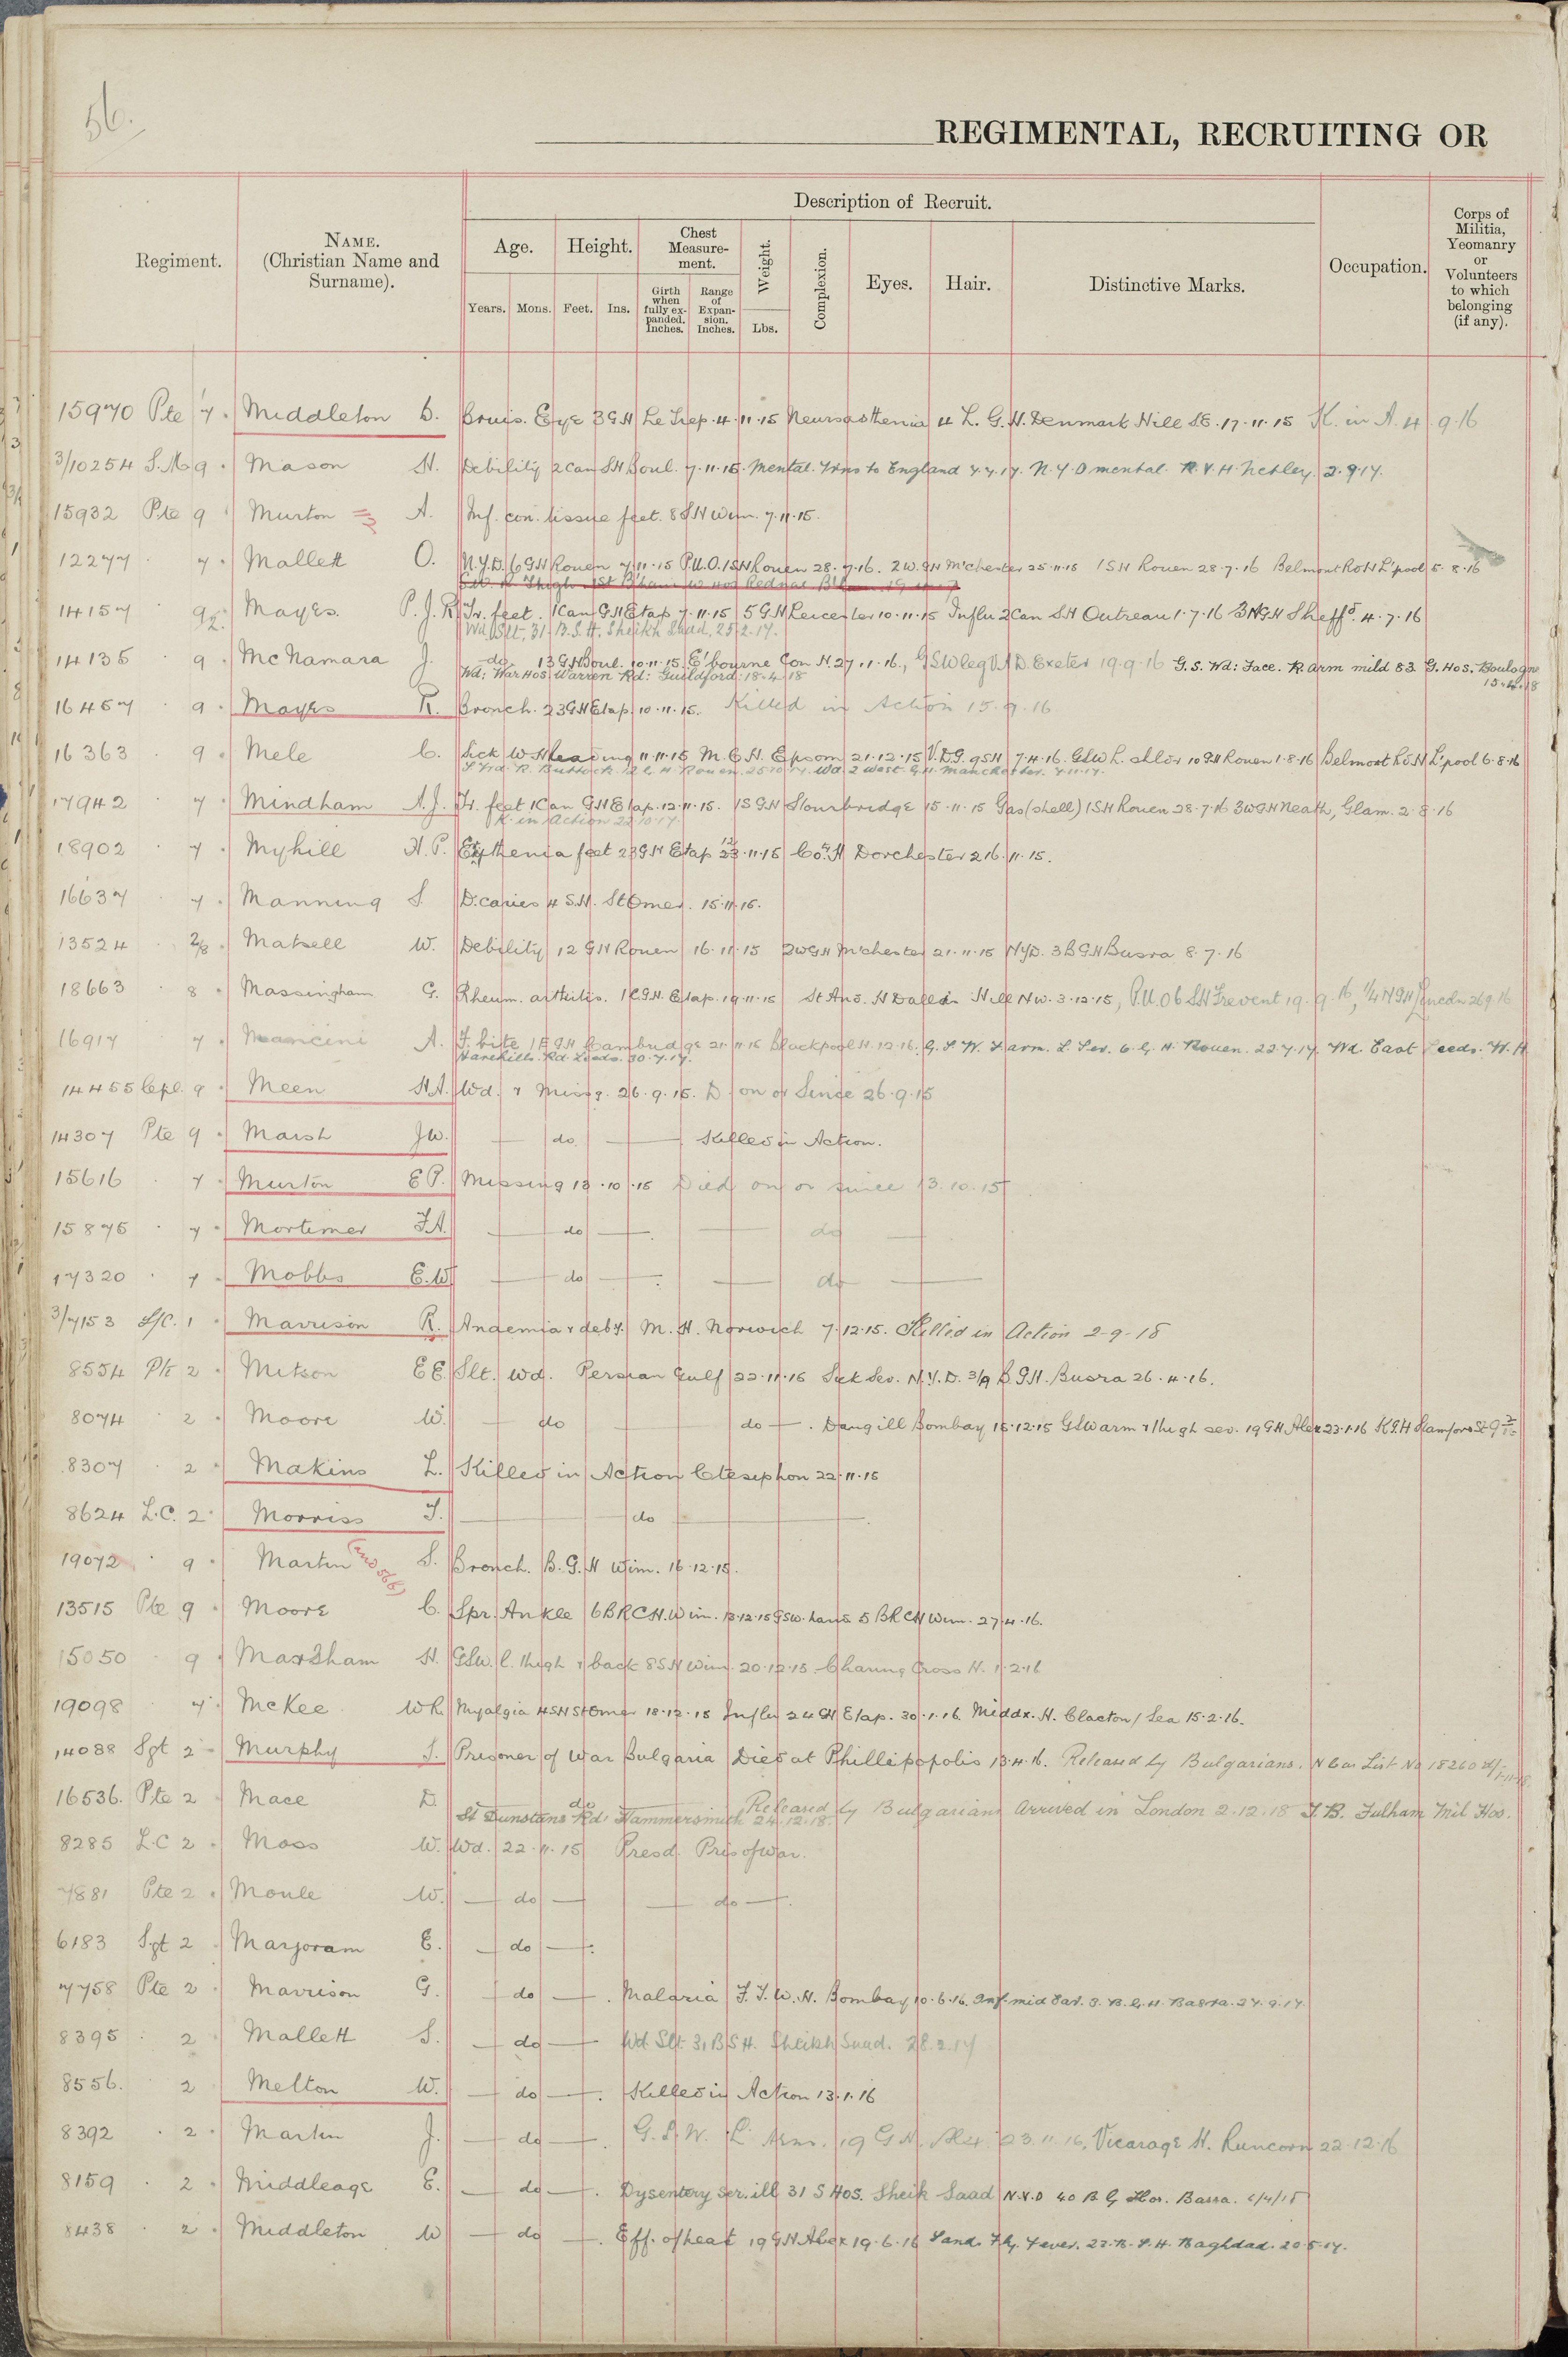 56.
REGIMENTAL, RECRUITING OR
Description of Recruit.
Regiment.
NAME.
(Christian Name and
Surname).
Age.
Height.
Chest
Measure-
ment.
Weight.
Complexion.
Eyes.
Hair.
Distinctive Marks.
Occupation.
Corps of
Militia,
Yeomanry
or
Volunteers
to which
belonging
(if any).
Years.
Mons.
Feet.
Ins.
Girth
when
fully ex-
panded.
Inches.
Range
of
Expan-
sion.
Inches.
Lbs.
15970 Pte 7 Middleton D. Bruis. Eye 3 G.H Le Trep. 4.11.15 Neurasthenia 4 L. G. H. Denmark Hill SE. 17.11.15 K. in A. 4.9.16
3/10254 S.M 9 Mason H. Debility 2 Can SH Boul. 7.11.15. Mental. Trns to England 7.7.17. N.Y.D mental. R.V.H. Netley. 2.9.17.
15932 Pte 9 Murton A. Inf. con. tissue feet. 8 SH Wim. 7.11.15.
12277 7 Mallett O. N.Y.D. 6 GH Rouen 7.11.15 P.U.O. 1 SH Rouen 28.7.16. 2 W.GH M'chester 25.11.15 1 SH Rouen 28.7.16 Belmont Rd H L'pool 5.8.16
14157 9 Mayes. P.J.R Tr. feet. 1 Can GH Etap 7.11.15 5 GH Leicester 10.11.15 Influ 2 Can SH Outreau 1.7.16 3 NGH Sheffd. 4.7.16
Wd. Slt, 31. B.S.H. Sheikh Saad, 25.2.17.
14135 9 McNamara J. do 13 GH Boul. 10.11.15. E'bourne Con H. 27.1.16., GSW leg V.A.D. Exeter 19.9.16 G.S. Wd: Face. R. Arm mild 53 G. Hos. Boulogne
15.4.18
Wd: War Hos Warren Rd: Guildford: 18.4.18
16457 9 Mayes R. Bronch. 23 GH Etap. 10.11.15. Killed in Action 15.9.16
16363 9 Mele C. Sick W H Reading 11.11.15 M. C H. Epsom 21.12.15 V.D.G. 9 SH 7.4.16. GSW L. shldr 10 GH Rouen 1.8.16 Belmont Rd H L'pool 6.8.16
17942 7 Mindham A.J. Tr. feet 1 Can GH Etap. 12.11.15. 1 S GH Stourbridge 15.11.15 Gas (shell) 1 SH Rouen 28.7.16 3 WGH Neath, Glam. 2.8.16
K. in Action 22.10.17.
18902 7 Myhill H.P. Erythenia feet 23 GH Etap 23.11.15 Co. H Dorchester 216.11.15.
16637 7 Manning S. D. caries 4 S.H. St Omer. 15.11.15.
13524 2/8 Matsell W. Debility 12 GH Rouen 16.11.15 2 WGH M'chester 21.11.15 NYD. 3 B GH Busra 8.7.16
18663 8 Massingham G. Rheum. arthritis. 1 C GH. Etap. 19.11.15 St Ans. H Dallis Hill NW. 3.12.15, P.U.O 6 SH Frevent 19.9.16, 1/4 N GH Lincoln 26.9.16
16917 7 Mancini A. F. bite 1 E GH Cambridge 21.11.15 Blackpool H. 12.16. G.S.W. F arm. L. Sev. 6. G. H. Rouen. 22.7.17. Wd. East Leeds. W.H
Harehills. Rd. Leeds. 30.7.17.
14455 Cpl. 9 Meen H.A. Wd. & Missg. 26.9.15. D. on or Since 26.9.15
14307 Pte 9 Marsh J.W. do Killed in Action.
15616 7 Murton E P. Missing 13.10.15 Died on or since 13.10.15
15875 7 Mortimer F.A. do do
17320 7 Mobbs E.W. do do
3/7153 L/C. 1 Mavrison R. Anaemia & deby. M. H. Norwich 7.12.15. Killed in Action 2-9-18
8554 Pte 2 Mitson E E. Slt. Wd. Persian Gulf 22.11.15 Sick Sev. N.Y.D. 3/A B. GH. Busra 26.4.16.
8074 2 Moore W. do do. Daugill Bombay 15.12.15 GSW arm & thigh sev. 19 GH Alex 23.1.16 K.G.H Stamford St
8307 2 Makins L. Killed in Action Ctesiphon 22.11.15
8624 L.C. 2 Morriss T. do
19072 9 Martin S. Bronch. B. G. H Wim. 16.12.15.
13515 Pte 9 Moore C. Spr. Ankle 6 BRCH. Wim. 13.12.15 GSW. hand 5 BRCH Wim. 27.4.16.
15050 9 Marsham H. GSW. l. thigh & back 8 SH Wim. 20.12.15. Charing Cross H. 1.2.16
19098 7 McKee W R. Myalgia 4 SH St Omer 18.12.15 Influ 24 GH Etap. 30.1.16. Middx. H. Clacton / Sea 15.2.16.
14088 Sgt 2 Murphy J. Prisoner of War Bulgaria Died at Phillipopolis 13.4.16. Released by Bulgarians. N Cas List No 18260 d/ 1-11-18.
16536. Pte 2 Mace D. do Released by Bulgarians Arrived in London 2.12.18 T.B. Fulham Mil Hos.
St Dunstans Rd: Hammersmith 24.12.18.
8285 L.C 2 Moss W. Wd. 22.11.15 Presd. Pris of War.
7881 Pte 2 Moule W. do do
6183 Sgt 2 Marjoram E. do
7758 Pte 2 Mavrison G. do Malaria F.F.W.H. Bombay 10.6.16. Inf. mid Ear. 3. B. G. H. Basra. 27.9.17.
8395 2 Mallett S. do Wd Slt 31 BSH. Sheikh Saad. 28.2.17
8556. 2 Melton W. do Killed in Action 13.1.16
8392 2 Martin J. do G.S.W. L Arm. 19 GH. Alex. 23.11.16, Vicarage H. Runcorn 22.12.16
8159 2 Middleage E. do Dysentery Ser. ill 31 S Hos. Sheik Saad N.Y.D 40 B G Hos. Basra.
8438 2 Middleton W do Eff. of heat 19 GH Alex 19.6.16 Sand. Fly. Fever. 23. B. S. H. Baghdad. 20.5.17.